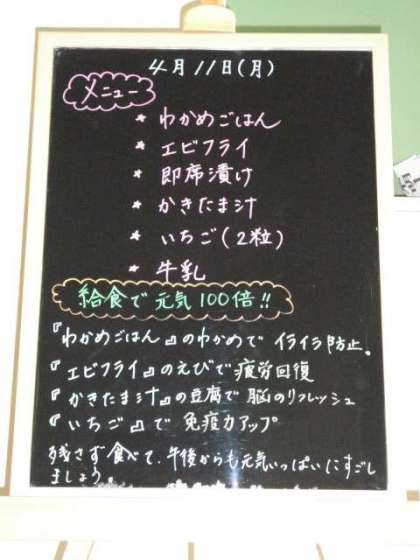 4月11日(月)
メニュー
* わかめごはん
* エビフライ
* 即席漬け
* かきたま汁
* いちご(2粒)
* 牛乳
給食で元気100倍!!
『わかめごはん』のわかめでイライラ防止。
『エビフライ』のえびで疲労回復
『かきたま汁』の豆腐で脳のリフレッシュ
『いちご』で免疫力アップ
残さず食べて、午後からも元気いっぱいにすごし
ましょう。